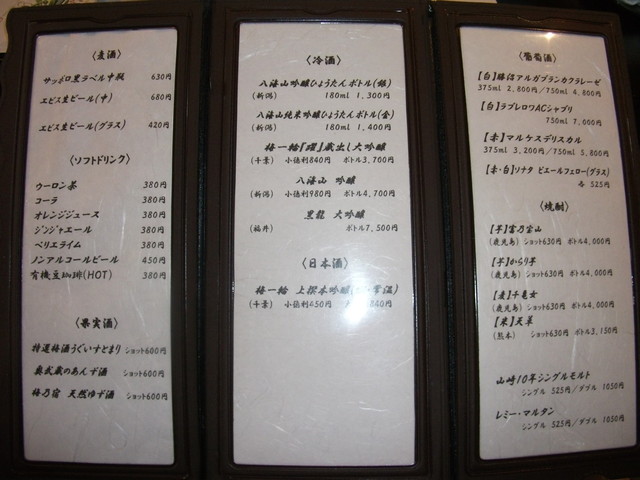 〈麦酒〉
サッポロ黒ラベル中瓶 630円
エビス生ビール(中) 680円
エビス生ビール(グラス) 420円
〈ソフトドリンク〉
ウーロン茶 380円
コーラ 380円
オレンジジュース 380円
ジンジャエール 380円
ペリエライム 380円
ノンアルコールビール 450円
有機豆珈琲(HOT) 380円
〈果実酒〉
特選梅酒うぐいすとまり ショット600円
奥武蔵のあんず酒 ショット600円
梅乃宿 天然ゆず酒 ショット600円
〈冷酒〉
八海山吟醸ひょうたんボトル(銀)
(新潟) 180ml 1,300円
八海山純米吟醸ひょうたんボトル(金)
(新潟) 180ml 1,400円
梅一輪『躍』蔵出し大吟醸
(千葉) 小徳利840円 ボトル3,700円
八海山 吟醸
(新潟) 小徳利980円 ボトル4,700円
黒龍 大吟醸
(福井) ボトル7,500円
〈日本酒〉
梅一輪 上撰本吟醸(・常温)
(千葉) 小徳利450円 840円
〈葡萄酒〉
【白】勝沼アルガブランカクラレーゼ
375ml 2,800円/750ml 4,800円
【白】ラブレロワACシャブリ
750ml 7,000円
【赤】マルケスデリスカル
375ml 3,200円/750ml 5,800円
【赤・白】ソナタ ピエールフェロー(グラス)
各 525円
〈焼酎〉
【芋】富乃宝山
(鹿児島) ショット630円 ボトル4,000円
【芋】からり芋
(鹿児島) ショット630円 ボトル4,000円
【麦】千亀女
(鹿児島) ショット630円 ボトル4,000円
【米】天草
(熊本) ショット630円 ボトル3,150円
山崎10年シングルモルト
シングル 525円/ダブル 1050円
レミー・マルタン
シングル 525円/ダブル 1050円